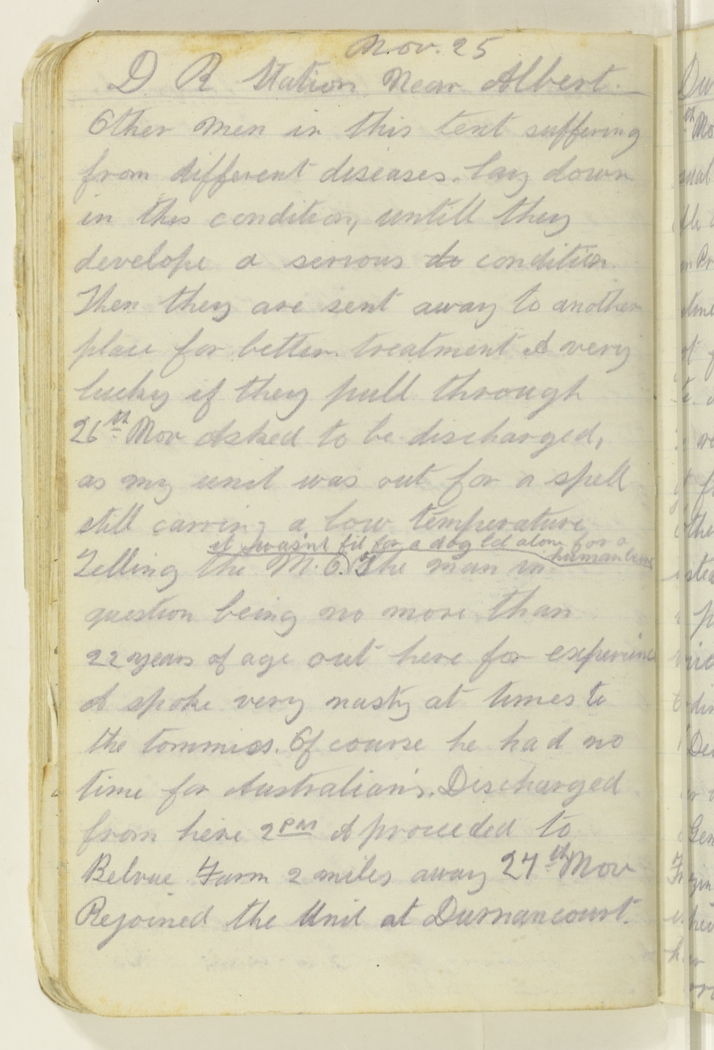 Nov. 25
D R Station Near Albert.
Other men in this tent suffering
from different diseases. lay down
in this condition, untill they
develope a serious do condition.
Then they are sent away to another
place for better treatment & very
lucky if they pull through
26th Nov Asked to be discharged,
as my unit was out for a spell
still carring a low temperature
it wasn't fit for a dog let alone for a
human being
Telling the M.O. The man in
question being no more than
22 years of age out here for experience
& spoke very nasty at times to
the tommies. Of course he had no
time for Australians. Discharged
from here 2 PM & proceeded to
Belvue Farm 2 miles away 27th Nov
Rejoined the Unit at Durnancourt.